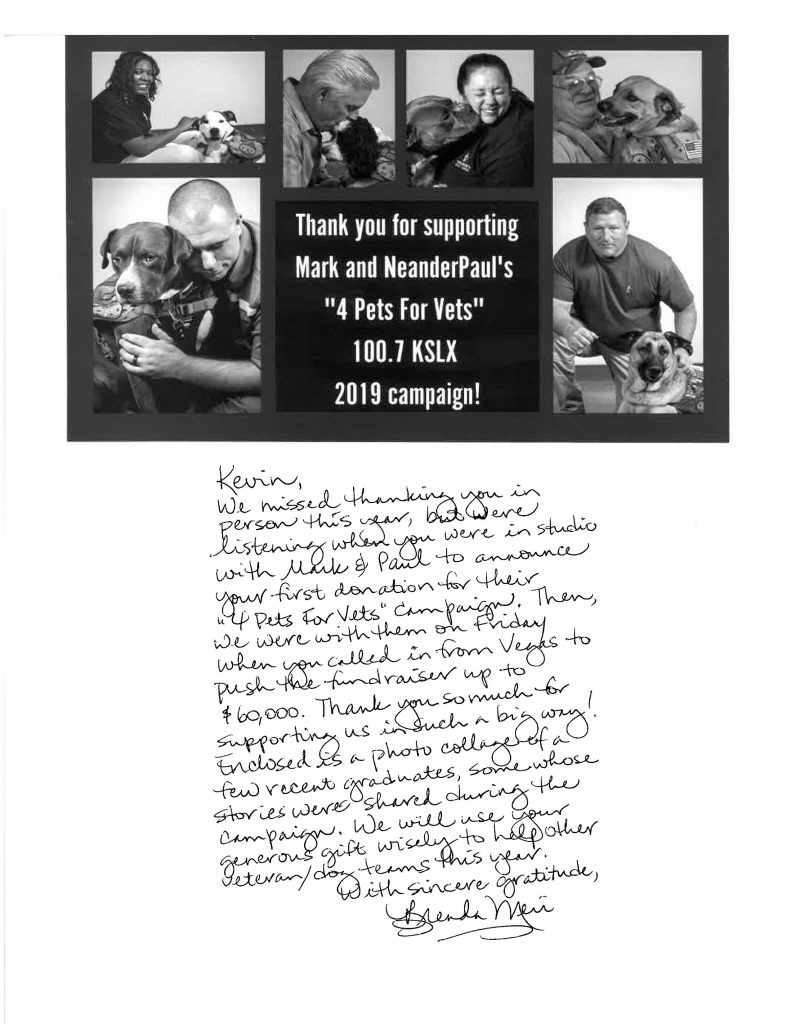 Thank you for supporting
Mark and NeanderPaul's
"4 Pets For Vets"
100.7 KSLX
2019 campaign!
Kevin,
We missed thanking you in
person this year, but were
listening when you were in studio
with Mark & Paul to announce
your first donation for their
"4 Pets For Vets" campaign. Then,
we were with them on Friday
when you called in from Vegas to
push the fundraiser up to
$60,000. Thank you so much for
supporting us in such a big way!
Enclosed is a photo collage of a
few recent graduates, some whose
stories were shared during the
campaign. We will use your
generous gift wisely to help other
veteran/dog teams this year.
With sincere gratitude,
Brenda